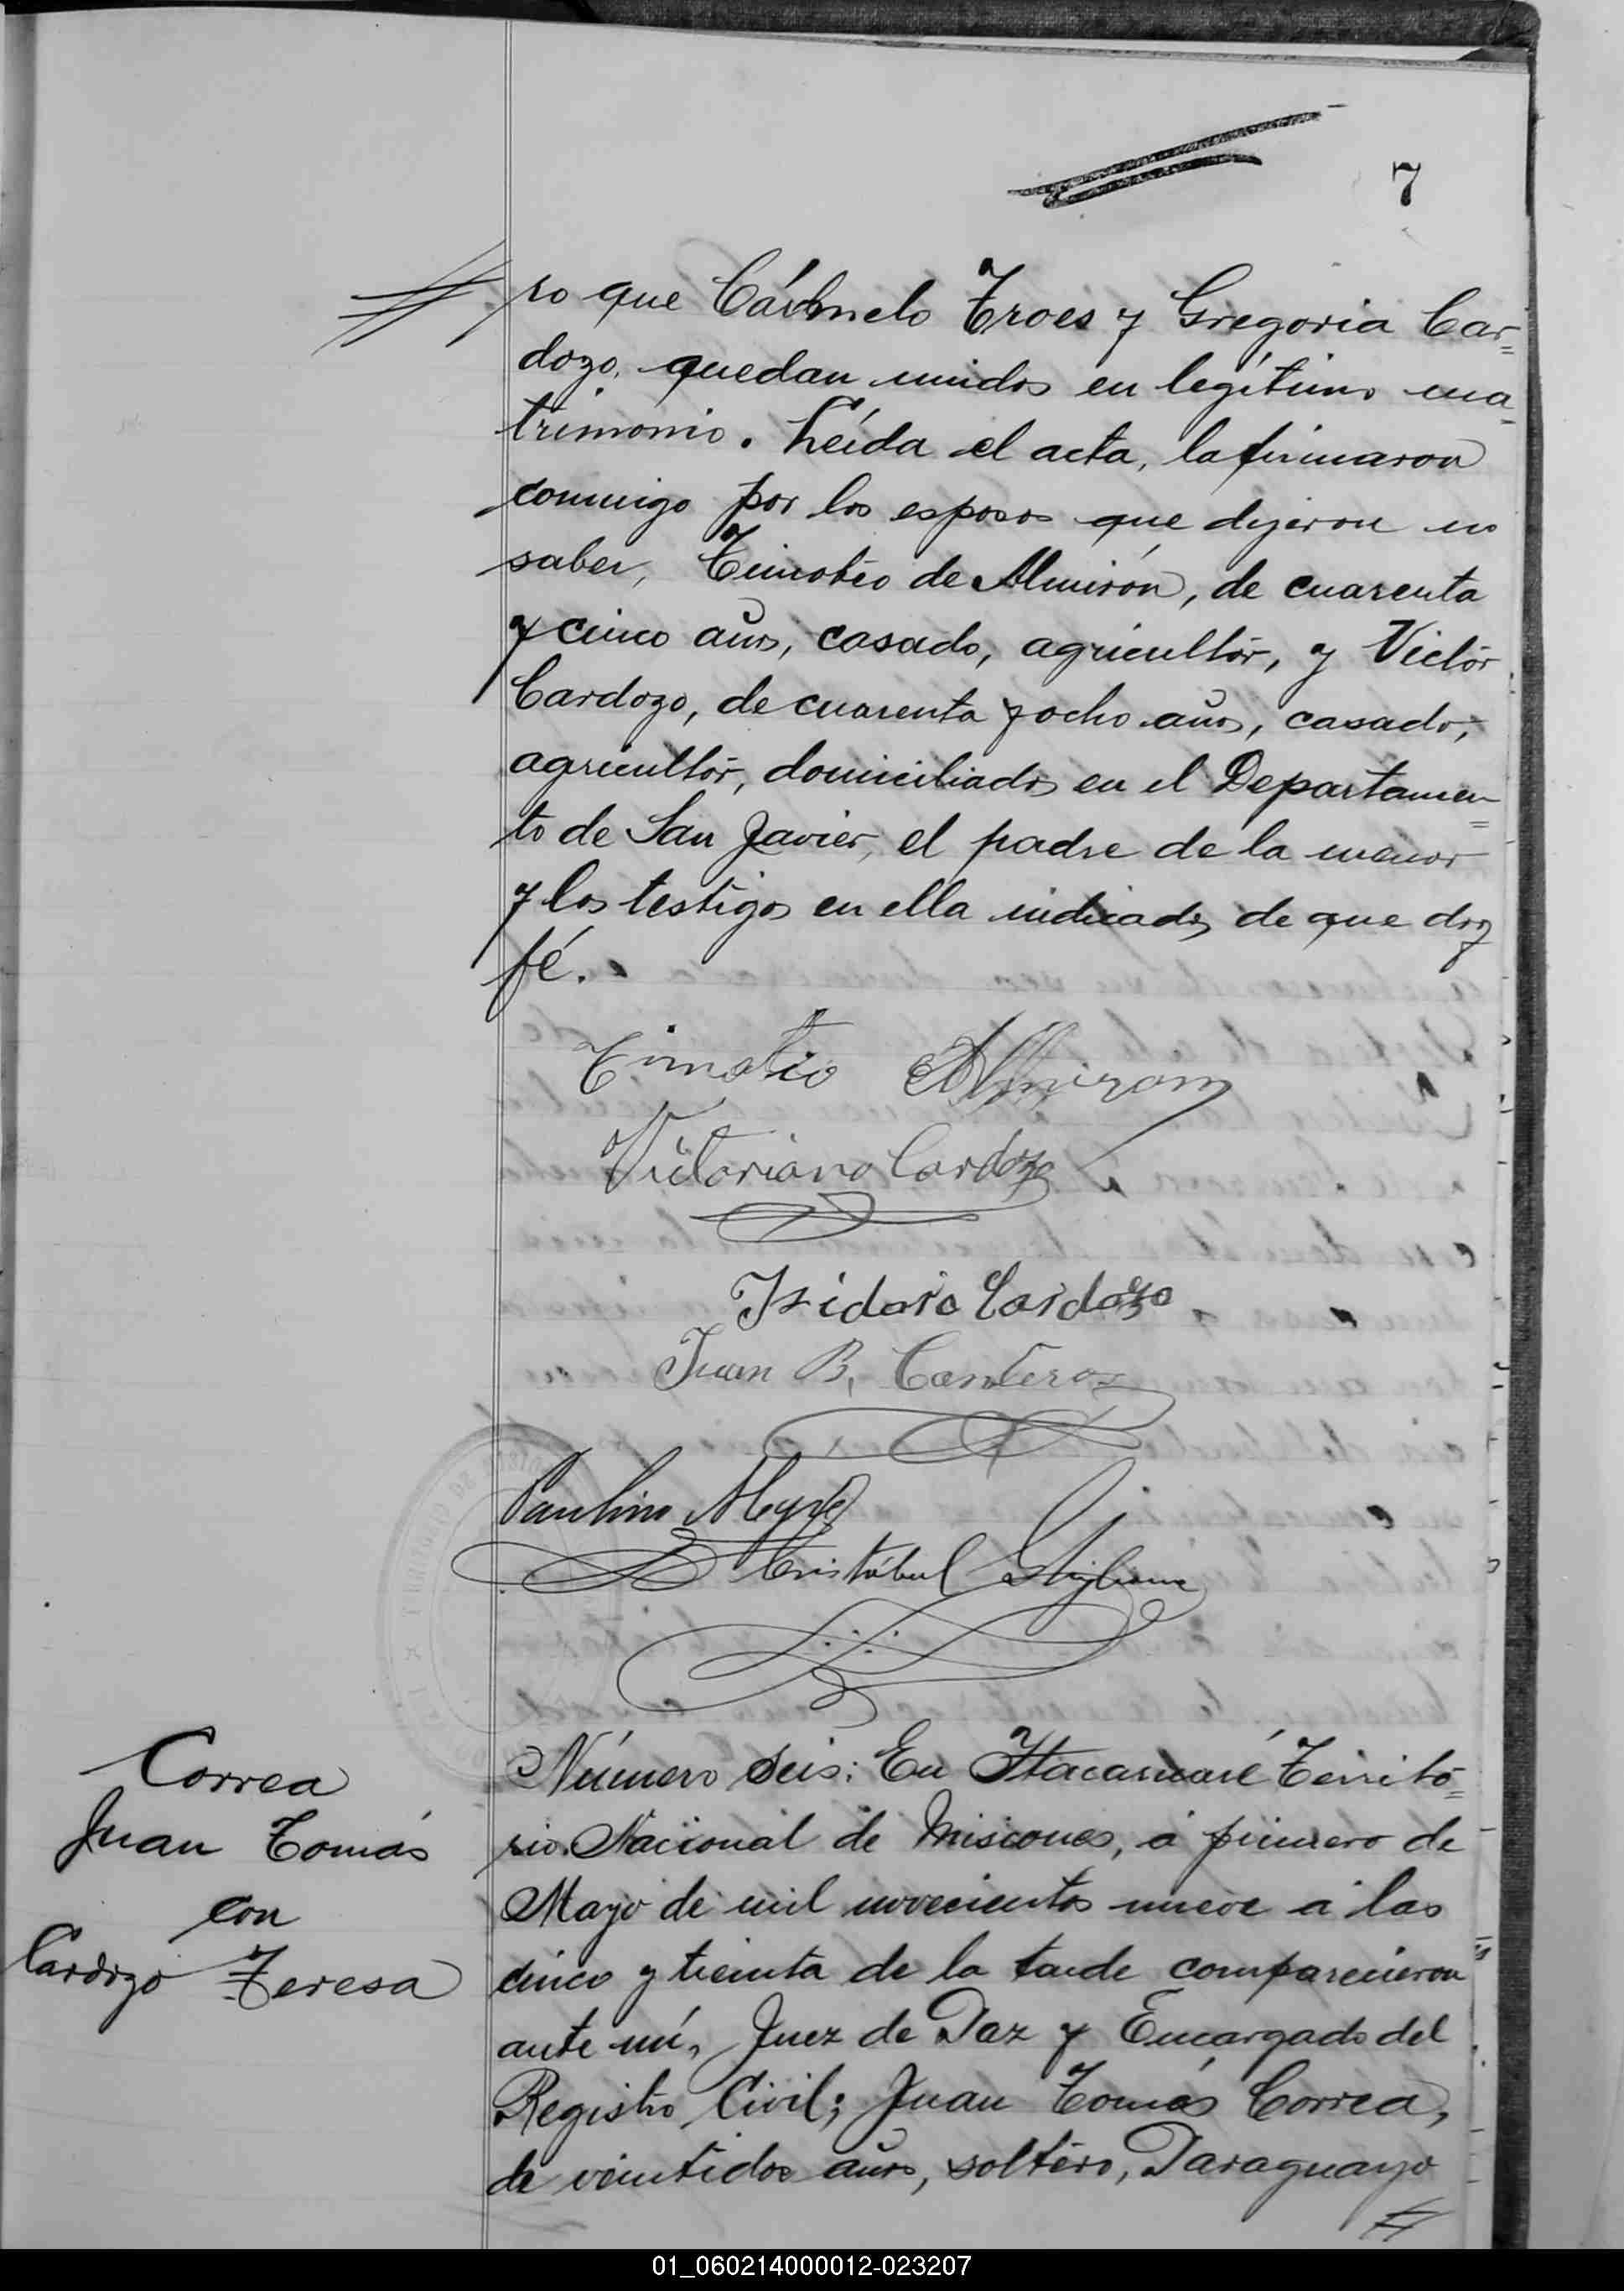 7
ro que Cármelo Troes y Gregoria Car=
dozo, quedan unidos en legítimo ma=
trimonio. Leída el acta, la firmaron
conmigo por los esposos que dijeron no
saber, Timoteo de Almirón, de cuarenta
y cinco años, casado, agricultor, y Victor
Cardozo, de cuarenta y ocho años, casado,
agricultor, domiciliados en el Departamen=
to de San Javier, el padre de la menor
y los testigos en ella indicados, de que doy
fé.
Timotio Almiron
Victoriano Cardozo
Isidoro Cardozo
Juan B. Canteros
Paulino
Cristóbal
Correa
Juan Tomás
con
Cardozo Teresa
Número Seis: En Itacaruaré Territo=
rio Nacional de Misiones, á primero de
Mayo de mil novecientos nueve á las
cinco y treinta de la tarde comparecieron
ante mí, Juez de Paz y Encargado del
Registro Civil; Juan Tomás Correa,
de veintidos años, soltero, Paraguayo
01_060214000012-023207